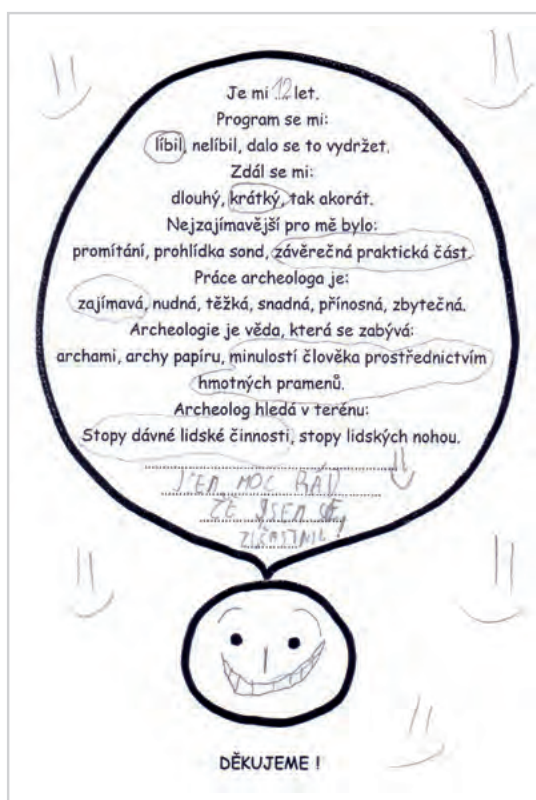 Je mi 12 let.
Program se mi:
líbil, nelíbil, dalo se to vydržet.
Zdál se mi:
dlouhý, krátký, tak akorát.
Nejzajímavější pro mě bylo:
promítání, prohlídka sond, závěrečná praktická část.
Práce archeologa je:
zajímavá, nudná, těžká, snadná, přínosná, zbytečná.
Archeologie je věda, která se zabývá:
archami, archy papíru, minulostí člověka prostřednictvím
hmotných pramenů.
Archeolog hledá v terénu:
Stopy dávné lidské činnosti, stopy lidských nohou.
JSEM MOC RÁD
ŽE JSEM SE
ZÚČASTNIL!
DĚKUJEME !